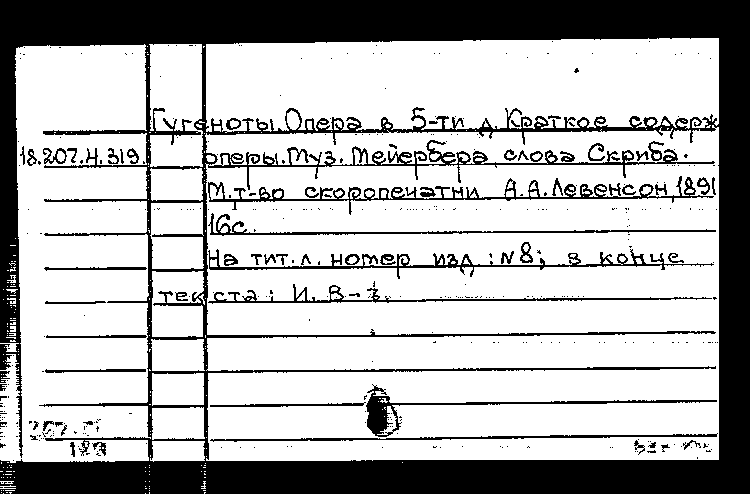 Гугеноты. Опера в 5-ти д. Краткое содерж
18.207.4.319. оперы. Муз. Мейербера, слова Скриба.
М. т-во скоропечатни А.А. Левенсон, 1891
16с.
На тит. л. номер изд: N8; в конце
текста: И. В-